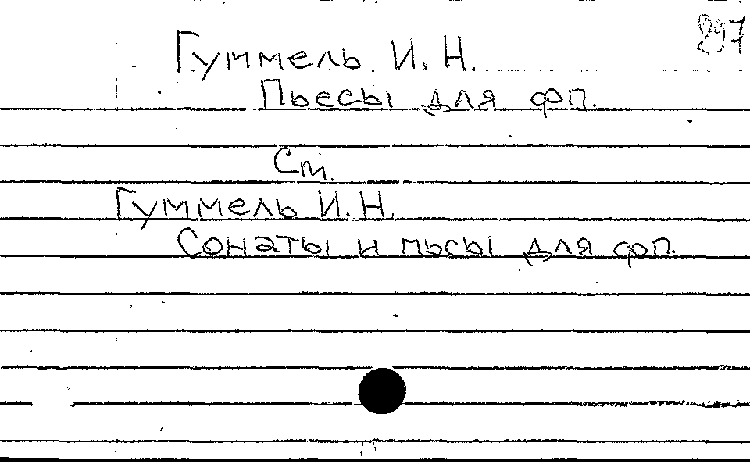 297
Гуммель И. Н.
Пьесы для фп.
См.
Гуммель И. Н.
Сонаты и пьсы для фп.